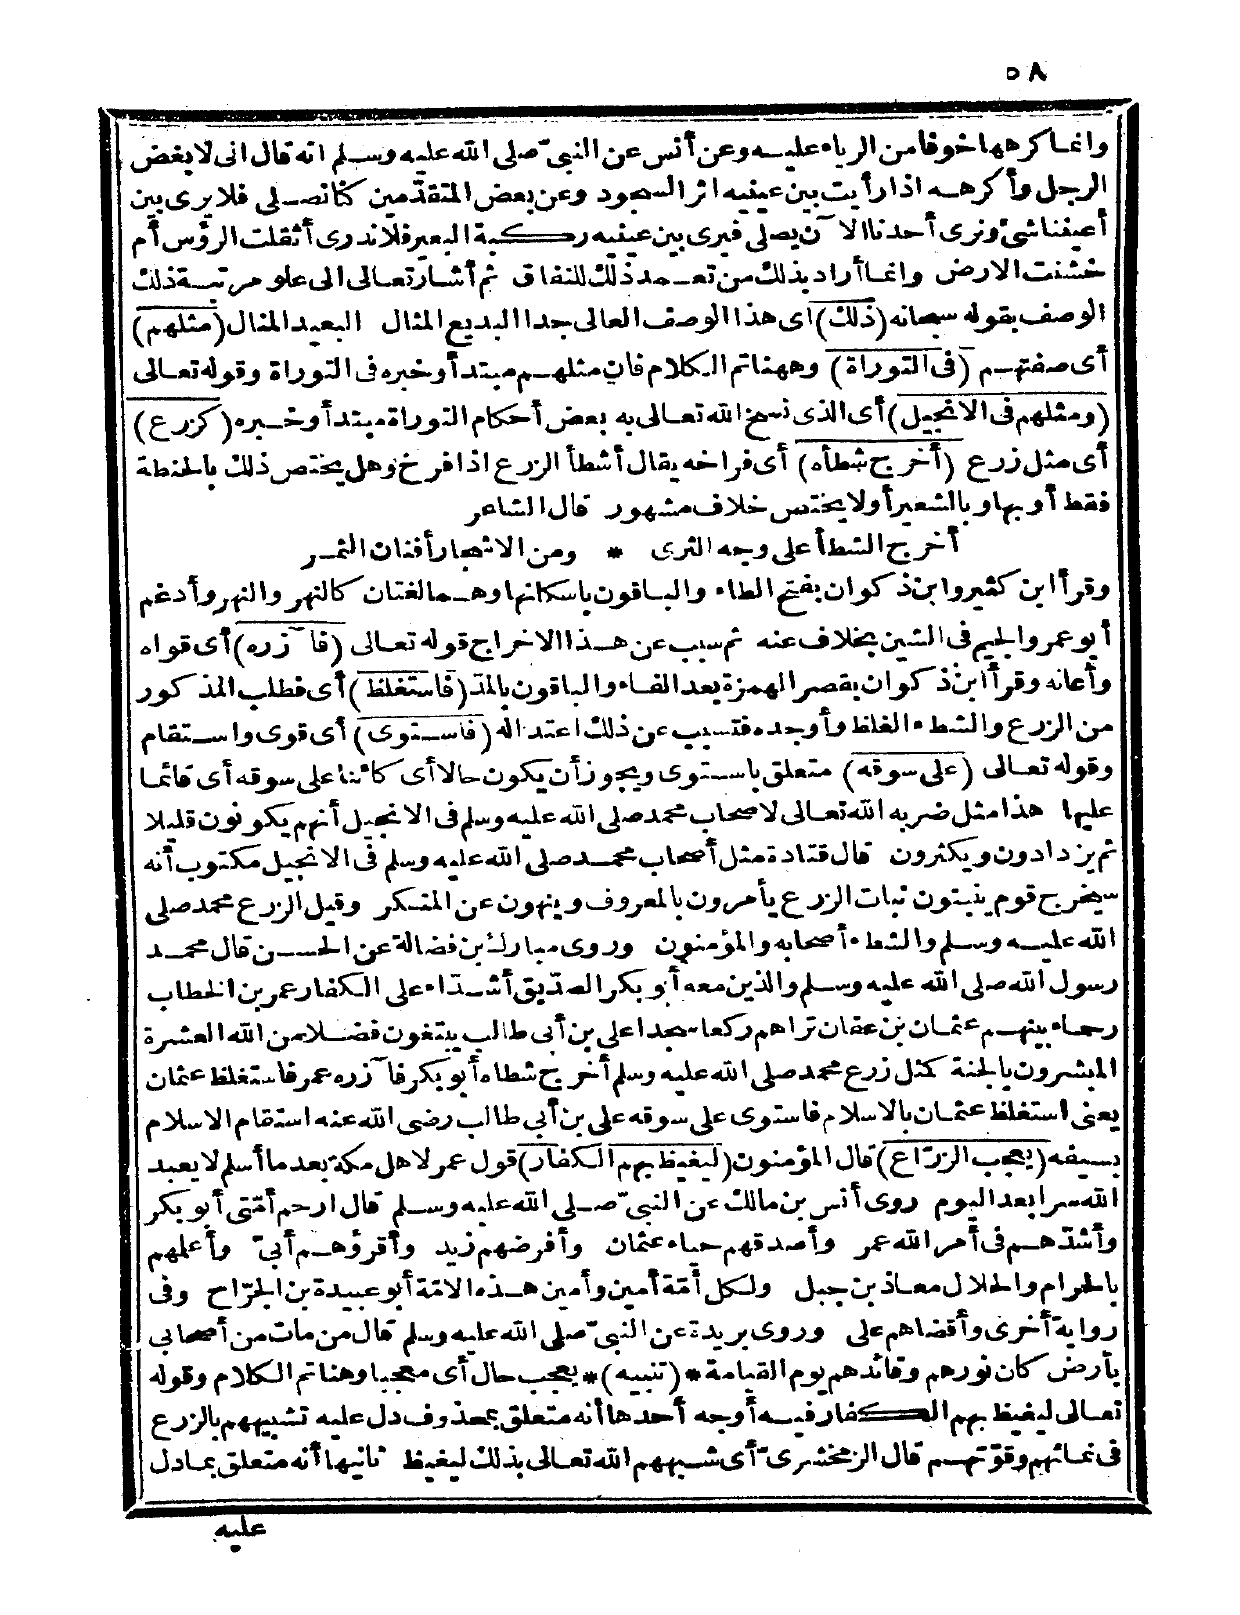 ٥٨
وانما كرهها خوفا من الرياء عليه وعن أنس عن النبيّ صلى الله عليه وسلم انه قال انى لابغض
الرجل وأكرهه اذا رأيت بين عينيه اثر السجود وعن بعض المتقدّمين كنا نصلى فلا يرى بين
أعيننا شئ ونرى أحدنا الآن يصلى فيرى بين عينيه ركبة البعير فلا ندرى أثقلت الرؤس أم
خشنت الارض وانما أراد بذلك من تعمد ذلك للنفاق ثم أشار تعالى الى علو مرتبة ذلك
الوصف بقوله سبحانه (ذلك) اى هذا الوصف العالى جدا البديع المثال البعيد المنال (مثلهم)
أى صفتهم (فى التوراة) وههنا تم الكلام فان مثلهم مبتدأ وخبره فى التوراة وقوله تعالى
(ومثلهم فى الانجيل) أى الذى نسخ الله تعالى به بعض أحكام التوراة مبتدأ وخبره (كزرع)
أى مثل زرع (أخرج شطأه) أى فراخه يقال أشطأ الزرع اذا فرخ وهل يختص ذلك بالحنطة
فقط أو بها وبالشعير أو لا يختص خلاف مشهور قال الشاعر
أخرج الشطأ على وجه الثرى * ومن الاشجار أفنان الثمر
وقرأ ابن كثير وابن ذكوان بفتح الطاء والباقون باسكانها وهما لغتان كالنهر والنهر وأدغم
أبو عمرو الجيم فى الشين بخلاف عنه ثم سبب عن هذا الاخراج قوله تعالى (فآزره) أى قواه
وأعانه وقرأ ابن ذكوان بقصر الهمزة بعد الفاء والباقون بالمدّ (فاستغلظ) أى فطلب المذكور
من الزرع والشطء الغلظ وأوجده فتسبب عن ذلك اعتداله (فاستوى) أى قوى واستقام
وقوله تعالى (على سوقه) متعلق باستوى ويجوز أن يكون حالا أى كائنا على سوقه أى قائما
عليها هذا مثل ضربه الله تعالى لاصحاب محمد صلى الله عليه وسلم فى الانجيل أنهم يكونون قليلا
ثم يزدادون ويكثرون قال قتادة مثل أصحاب محمد صلى الله عليه وسلم فى الانجيل مكتوب أنه
سيخرج قوم ينبتون نبات الزرع يأمرون بالمعروف وينهون عن المنكر وقيل الزرع محمد صلى
الله عليه وسلم والشطء أصحابه والمؤمنون وروى مبارك بن فضالة عن الحسن قال محمد
رسول الله صلى الله عليه وسلم والذين معه أبو بكر الصديق أشدّاء على الكفار عمر بن الخطاب
رحماء بينهم عثمان بن عفان تراهم ركعا سجدا على بن أبى طالب يبتغون فضلا من الله العشرة
المبشرون بالجنة كمثل زرع محمد صلى الله عليه وسلم أخرج شطاه أبو بكر فآزره عمر فاستغلظ عثمان
يعنى استغلظ عثمان بالاسلام فاستوى على سوقه على بن أبى طالب رضى الله عنه استقام الاسلام
بسيفه (يعجب الزرّاع) قال المؤمنون (ليغيظ بهم الكفار) قول عمر لاهل مكة بعد ما أسلم لا يعبد
الله سرا بعد اليوم روى أنس بن مالك عن النبيّ صلى الله عليه وسلم قال ارحم أمّتى أبو بكر
وأشدّهم فى أمر الله عمر وأصدقهم حياء عثمان وأفرضهم زيد وأقرؤهم أبىّ وأعلمهم
بالحرام والحلال معاذ بن جبل ولكل أمّة أمين وأمين هذه الامّة أبو عبيدة بن الجرّاح وفى
رواية أخرى وأقضاهم على وروى بريدة عن النبيّ صلى الله عليه وسلم قال من مات من أصحابى
بأرض كان نورهم وقائدهم يوم القيامة *(تنبيه)* يعجب حال أى معجبا وهنا تم الكلام وقوله
تعالى ليغيظ بهم الكفار فيه أوجه أحدها أنه متعلق بمحذوف دل عليه تشبيههم بالزرع
فى نمائهم وقوّتهم قال الزمخشرىّ أى شبههم الله تعالى بذلك ليغيظ ثانيها أنه متعلق بما دل
عليه